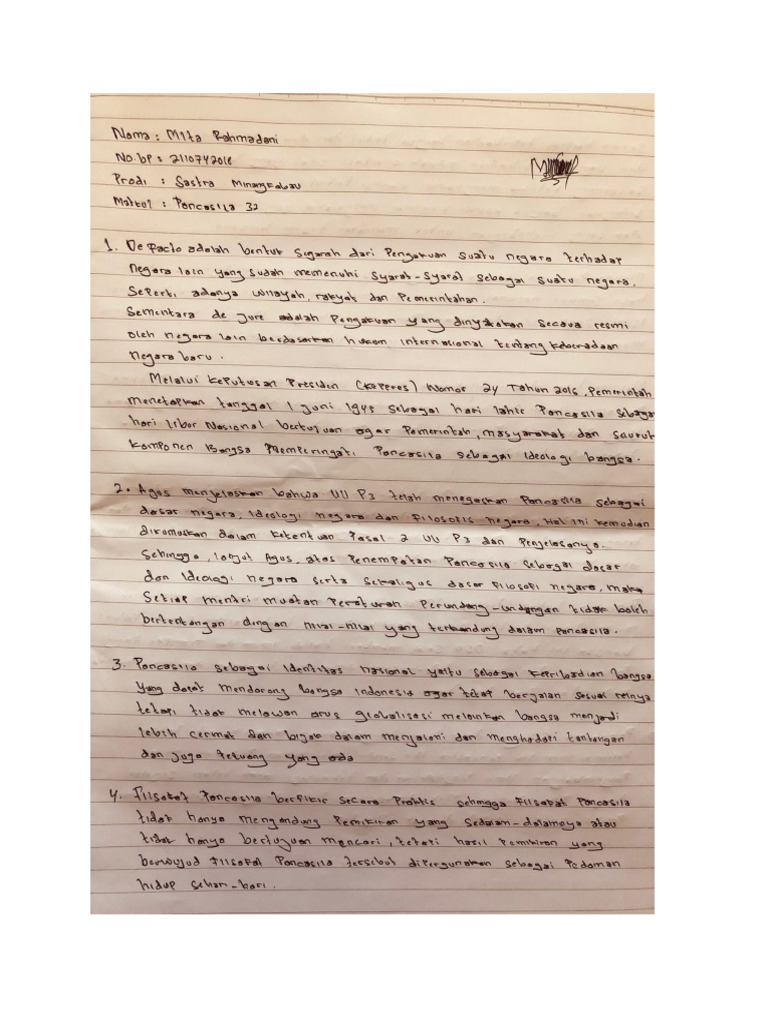 Nama : Mita Rahmadani
No.bp : 2110742018
Prodi : Sastra Minangkabau
Matkul : Pancasila 32
1. De Facto adalah bentuk sejarah dari Pengakuan suatu negara terhadap
negara lain yang sudah memenuhi Syarat-syarat sebagai suatu negara,
Seperti adanya wilayah, rakyat dan Pemerintahan.
Sementara de jure adalah Pengakuan yang dinyatakan secara resmi
oleh negara lain berdasarkan hukum internasional tentang keberadaan
negara baru.
Melalui Keputusan Presiden (Keperes) Nomor 24 Tahun 2016, Pemerintah
menetapkan tanggal 1 Juni 1945 sebagai hari lahir Pancasila sebagai
hari libur Nasional bertujuan agar Pemerintah, masyarakat dan seluruh
Komponen Bangsa Memperingati Pancasila sebagai Ideologi bangsa.
2. Agus menjelaskan bahwa UU P3 telah menegaskan Pancasila sebagai
dasar negara, Ideologi negara dan Filosofis negara, Hal ini kemudian
dirumuskan dalam ketentuan Pasal 2 UU P3 dan Penjelasanya.
Sehingga, lanjut Agus, atas Penempatan Pancasila sebagai dasar
dan Ideologi negara serta sekaligus dasar filosofi negara, maka
Setiap mentri muatan Peraturah Perundang-undangan tidak boleh
bertentangan dingan nilai-nilai yang terkandung dalam pancasila.
3. Pancasila sebagai Identitas nasional yaitu sebagai kepribadian bangsa
yang dapat mendorong bangsa indonesia agar tetap berjalan sesuai relnya
tetapi tidak melawan arus globalisasi melainkan bangsa menjadi
lebih cermat dan bijak dalam menjalani dan menghadapi tantangan
dan juga Peluang yang ada
4. Filsafat Pancasila berfikir secara Praktis sehingga Filsafat Pancasila
tidak hanya mengandung Pemikiran yang sedalam-dalamnya atau
tidak hanya bertujuan mencari, tetapi hasil Pemikiran yang
berwujud Filsafat Pancasila tersebut dipergunakan sebagai Pedoman
hidup sehari-hari.